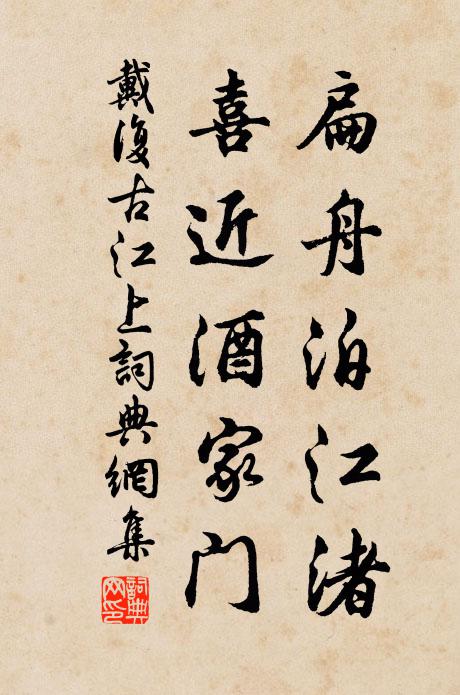 扁舟泊江渚
喜近酒家门
戴復古江上詞典網集
詞典网印